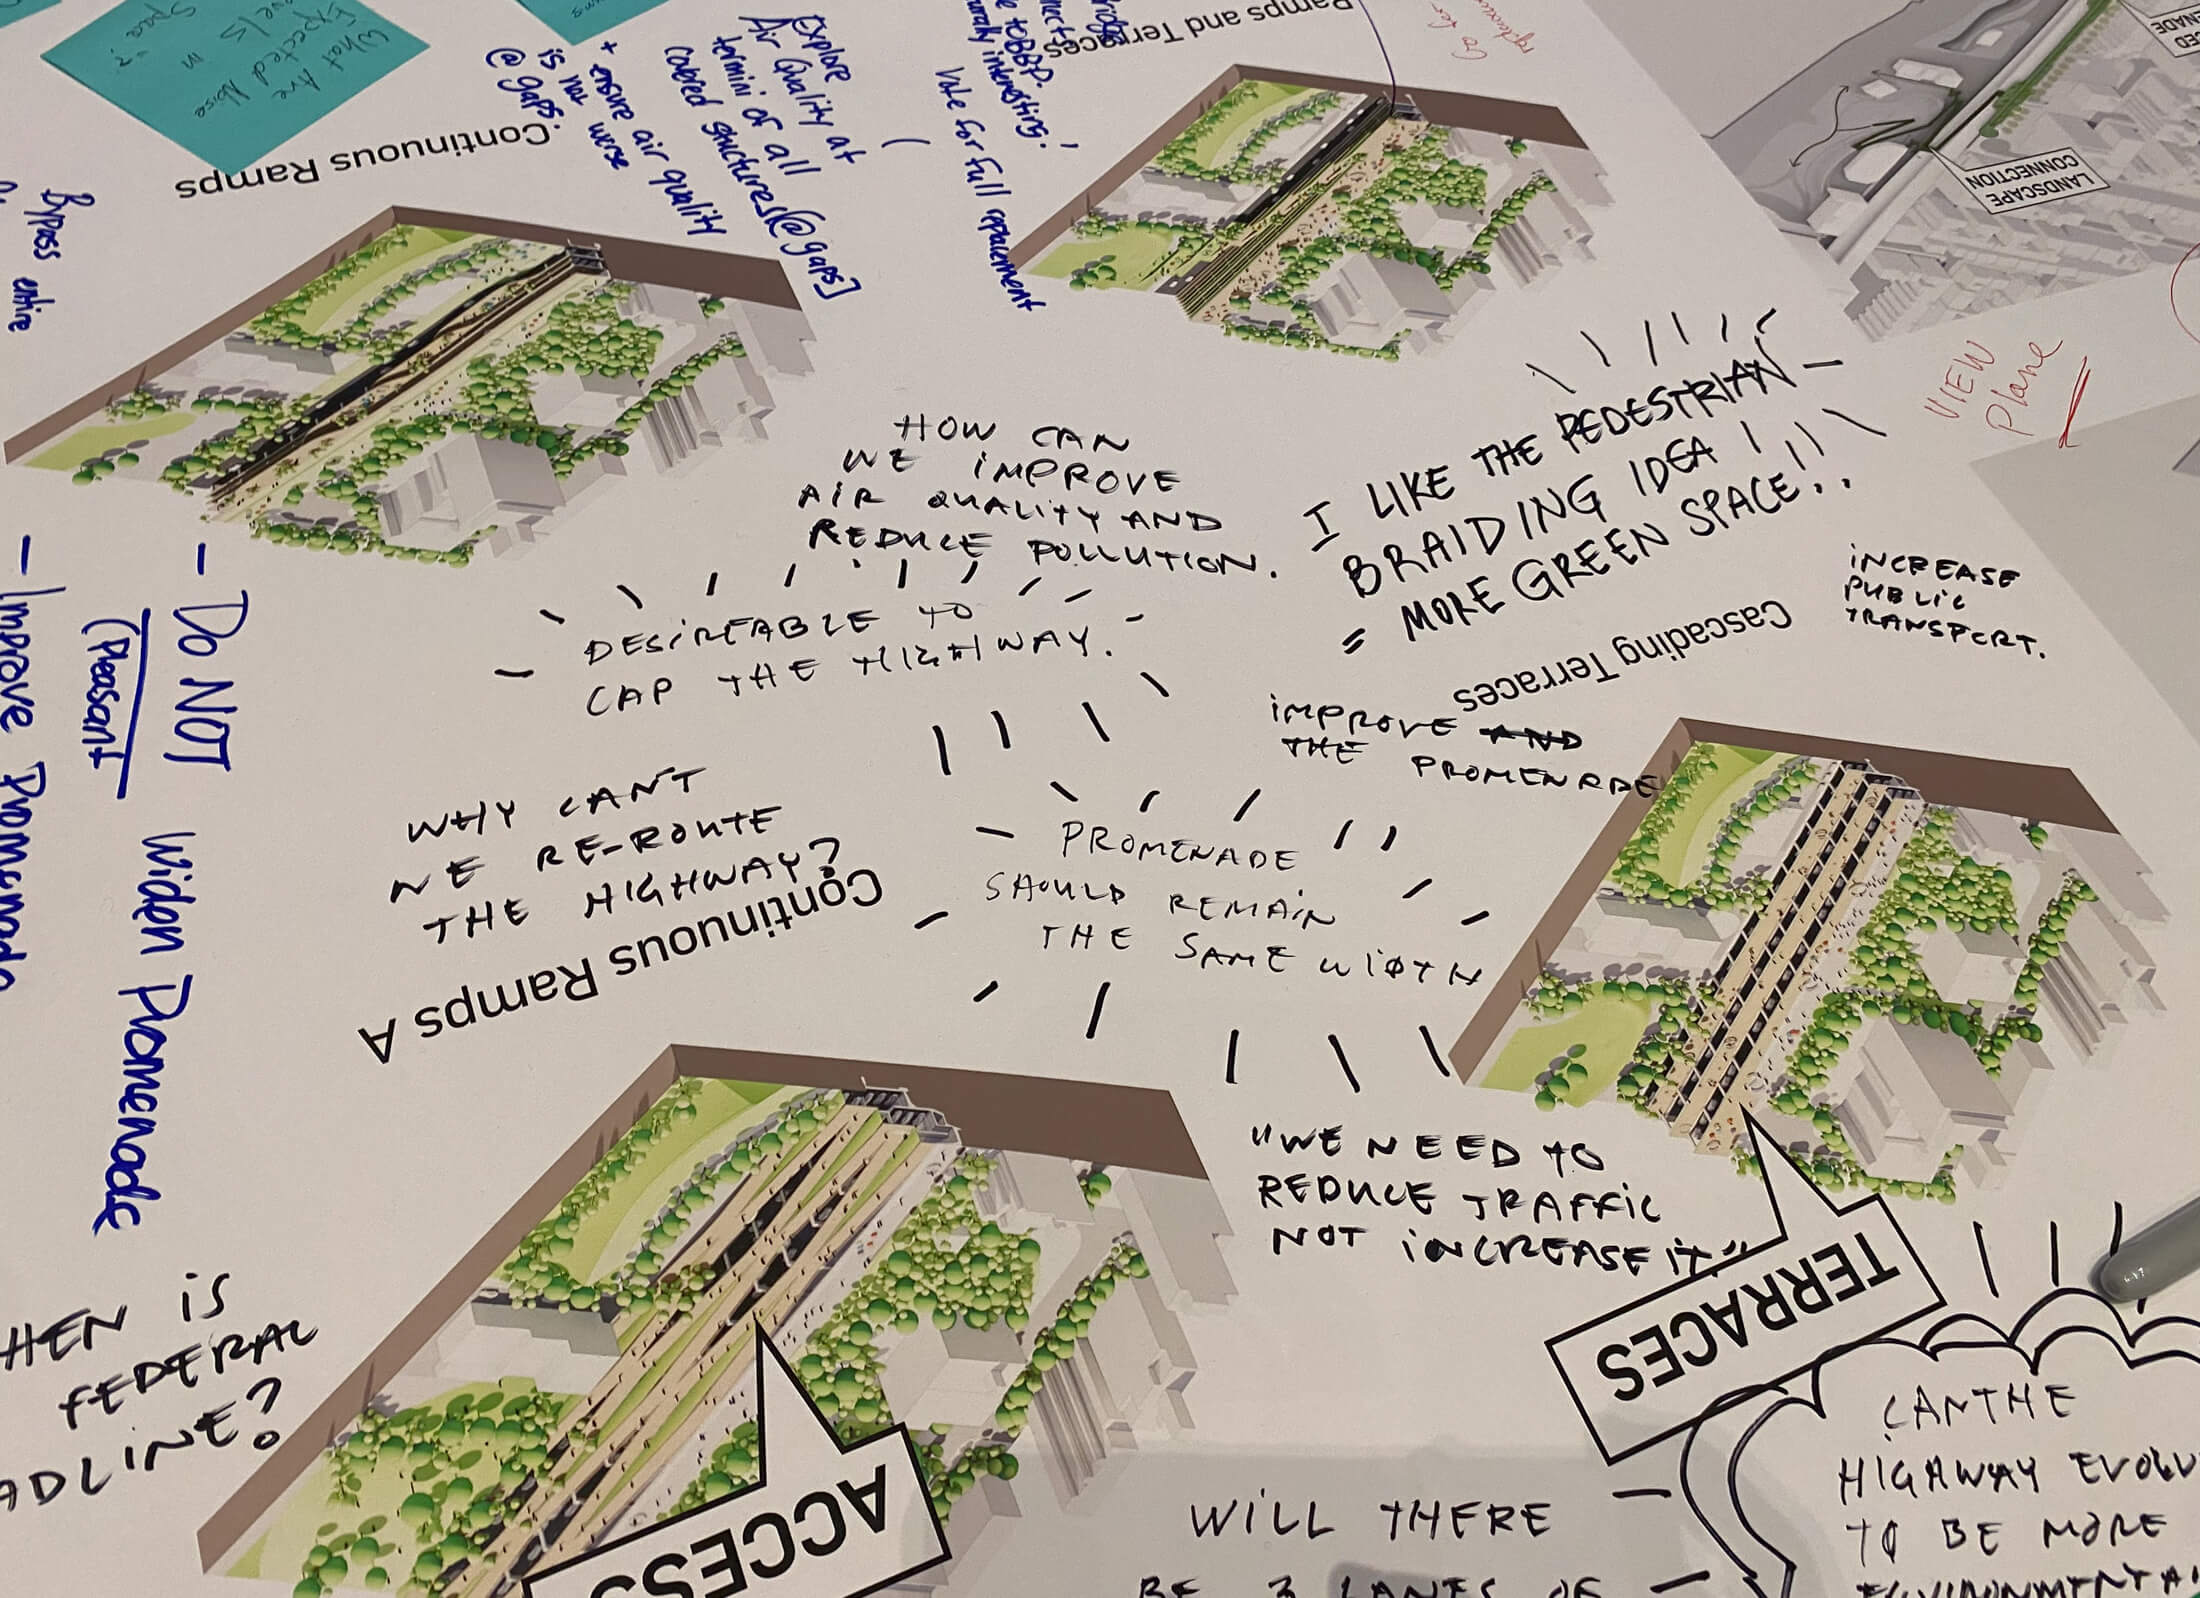 What Are
Expected Noise
levels in
Space"?
Continuous Ramps
Explore
Air Quality at
termini of all
covered structures[@gaps]
+ ensure air quality
is not worse
@ gaps.
Ramps and Terraces
to BBP.
interesting.
Vote for full replacement
LANDSCAPE
CONNECTION
VIEW
Plane
Bypass entire
HOW CAN
WE IMPROVE
AIR QUALITY AND
REDUCE POLLUTION.
I LIKE THE PEDESTRIAN
BRAIDING IDEA!
= MORE GREEN SPACE!!
INCREASE
PUBLIC
TRANSPORT.
DESIREABLE TO
CAP THE HIGHWAY.
Cascading Terraces
IMPROVE AND
THE PROMENADE
- Do NOT Widen Promenade
(Pleasant
- Improve Promenade
WHY CAN'T
WE RE-ROUTE
THE HIGHWAY?
Continuous Ramps A
PROMENADE
SHOULD REMAIN
THE SAME WIDTH
"WE NEED TO
REDUCE TRAFFIC
NOT INCREASE IT"
TERRACES
HEN IS
FEDERAL
ADLINE?
ACCESS
WILL THERE
BE 3 LANES OF
CAN THE
HIGHWAY EVOLV
TO BE MORE
ENVIRONMENTAL